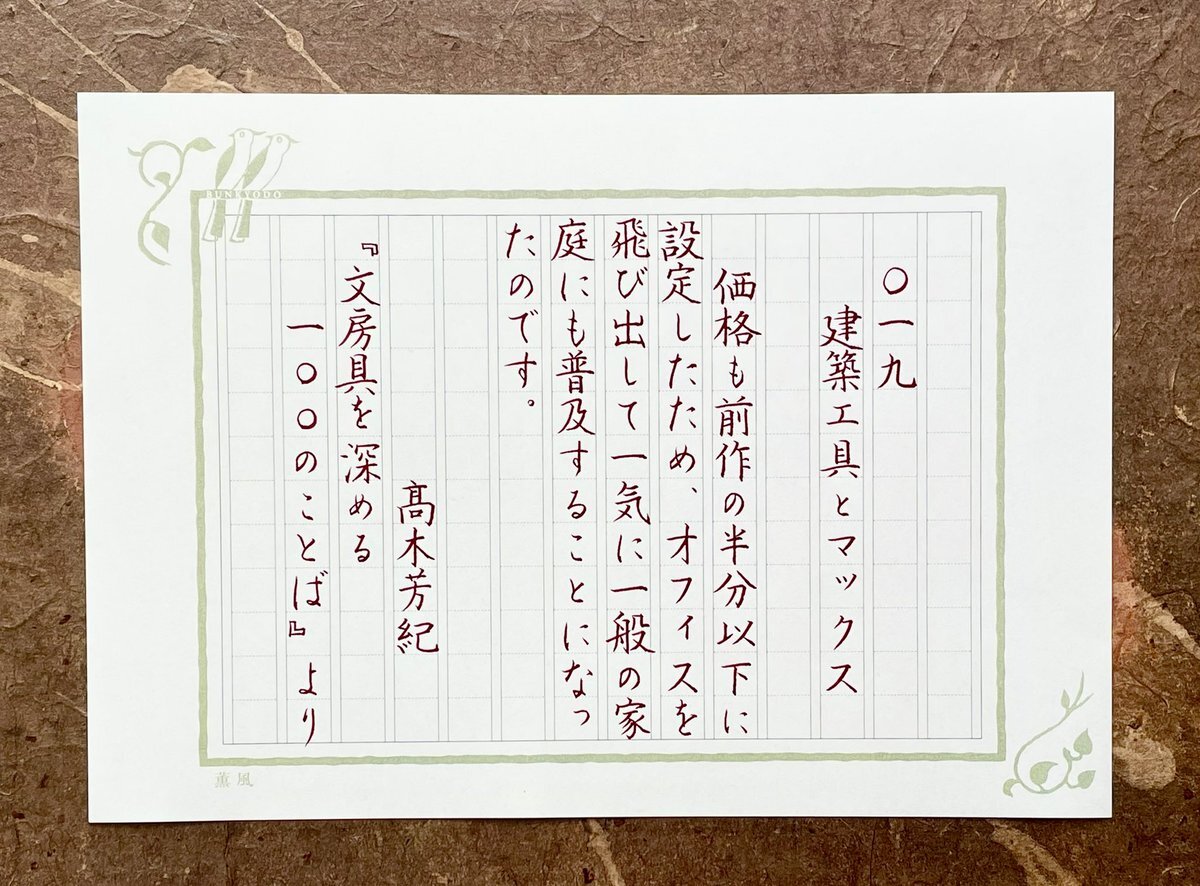 〇一九
建築工具とマックス
価格も前作の半分以下に
設定したため、オフィスを
飛び出して一気に一般の家
庭にも普及することになっ
たのです。
髙木芳紀
『文房具を深める
一〇〇のことば』より
BUNKYODO
薫風